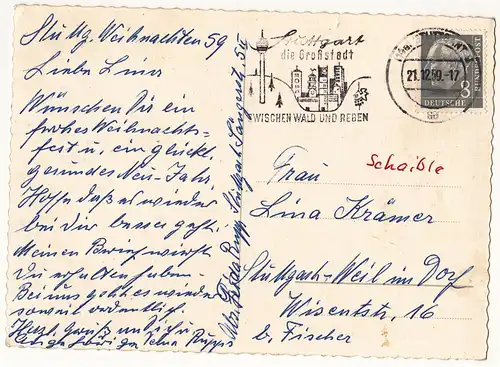 Stuttg. Weihnachten 59
Liebe Lina
Wünschen Dir ein
frohes Weihnachts=
fest u. ein glückl.
gesundes Neu-Jahr
Hoffe daß es wieder
bei Dir besser geht.
Meinen Brief wirst
Du erhalten haben.
Bei uns geht es wieder
soweit ordentlich.
Herzl. Gruß an Dich u.
Angehörigen
Stuttgart
die Großstadt
ZWISCHEN WALD UND REBEN
21.12.59.-17
8
DEUTSCHE
BUNDESPOST
Schaible
Frau
Lina Krämer
Stuttgart-Weil im Dorf
Wisentstr. 16
b. Fischer